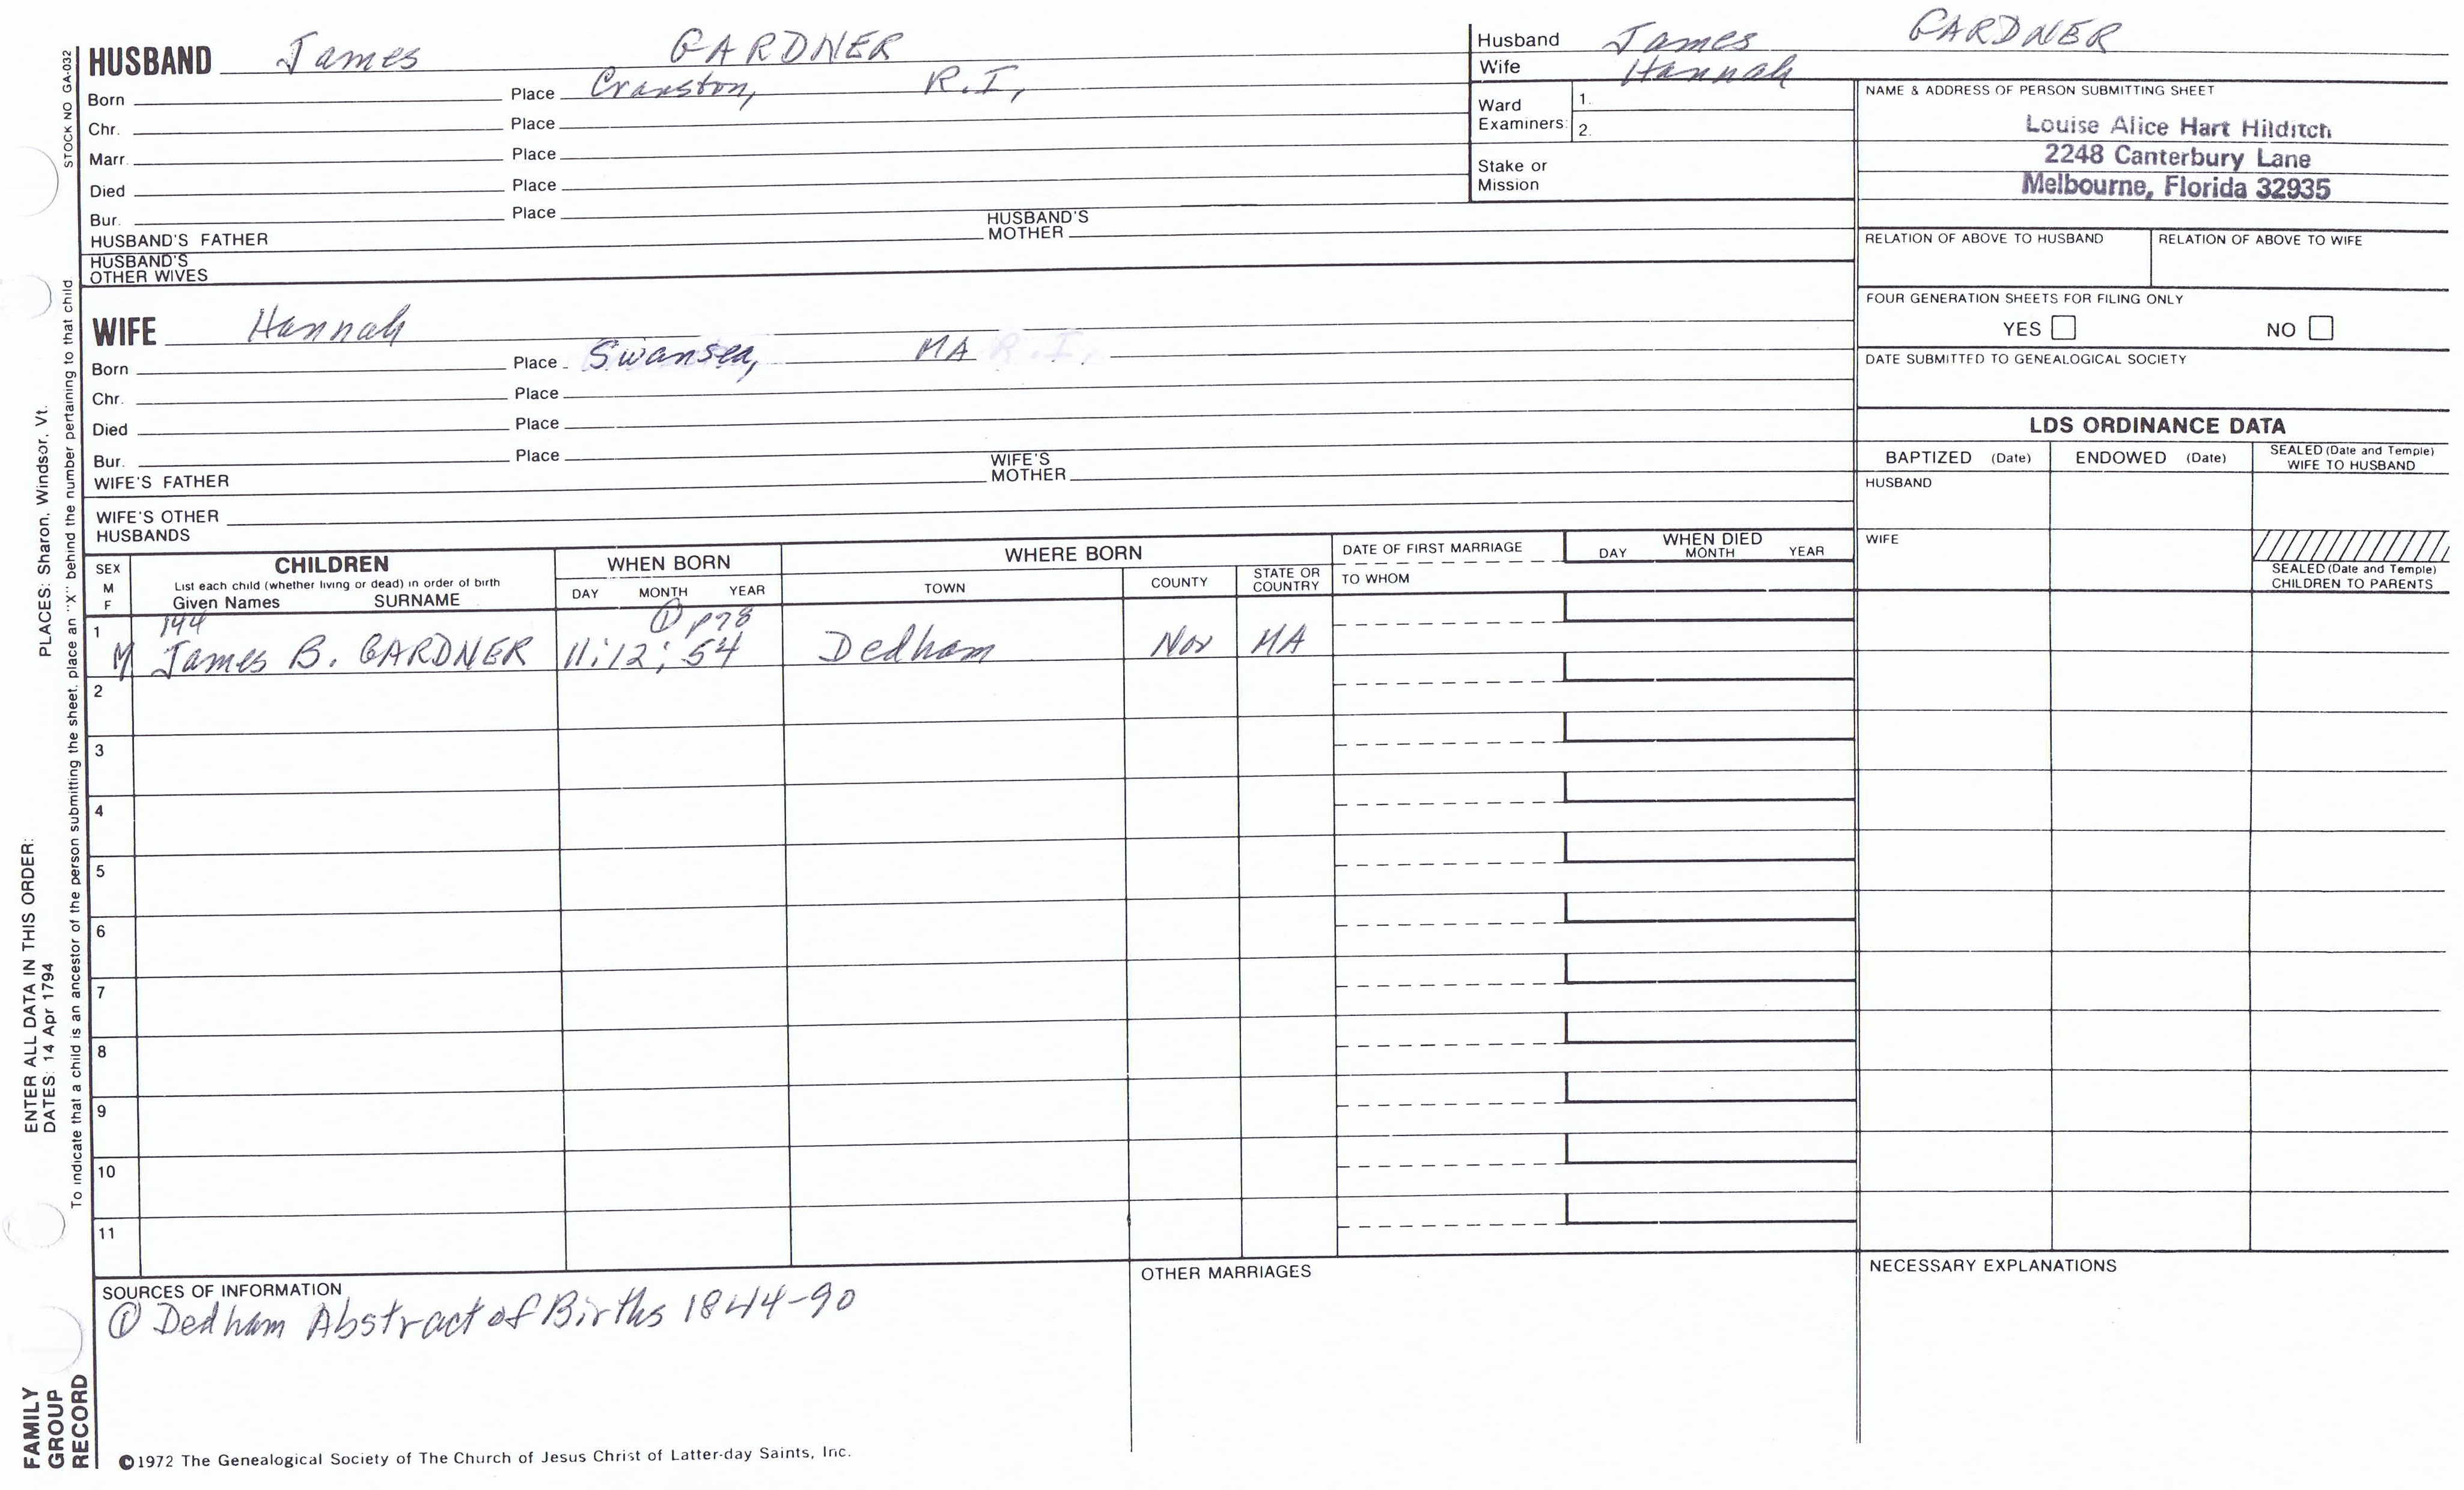 STOCK NO GA-032
HUSBAND James GARDNER
Born Place Cranston, R.I,
Chr. Place
Marr. Place
Died Place
Bur. Place
HUSBAND'S FATHER HUSBAND'S MOTHER
HUSBAND'S OTHER WIVES
Husband James GARDNER
Wife Hannah
Ward Examiners: 1.
2.
Stake or Mission
NAME & ADDRESS OF PERSON SUBMITTING SHEET
Louise Alice Hart Hilditch
2248 Canterbury Lane
Melbourne, Florida 32935
RELATION OF ABOVE TO HUSBAND RELATION OF ABOVE TO WIFE
FOUR GENERATION SHEETS FOR FILING ONLY
YES NO
DATE SUBMITTED TO GENEALOGICAL SOCIETY
WIFE Hannah
Born Place Swansea, MA R.I.
Chr. Place
Died Place
Bur. Place
WIFE'S FATHER WIFE'S MOTHER
WIFE'S OTHER HUSBANDS
LDS ORDINANCE DATA
BAPTIZED (Date) ENDOWED (Date) SEALED (Date and Temple) WIFE TO HUSBAND
HUSBAND
WIFE
SEALED (Date and Temple) CHILDREN TO PARENTS
SEX M F
CHILDREN
List each child (whether living or dead) in order of birth
Given Names SURNAME
WHEN BORN
DAY MONTH YEAR
WHERE BORN
TOWN COUNTY STATE OR COUNTRY
DATE OF FIRST MARRIAGE
TO WHOM
WHEN DIED
DAY MONTH YEAR
144 ① p78
1 M James B. GARDNER 11:12; 54 Dedham Nor MA
2
3
4
5
6
7
8
9
10
11
SOURCES OF INFORMATION
① Dedham Abstract of Births 1844-90
OTHER MARRIAGES
NECESSARY EXPLANATIONS
©1972 The Genealogical Society of The Church of Jesus Christ of Latter-day Saints, Inc.
FAMILY GROUP RECORD
ENTER ALL DATA IN THIS ORDER:
DATES: 14 Apr 1794
PLACES: Sharon, Windsor, Vt.
To indicate that a child is an ancestor of the person submitting the sheet, place an "X" behind the number pertaining to that child